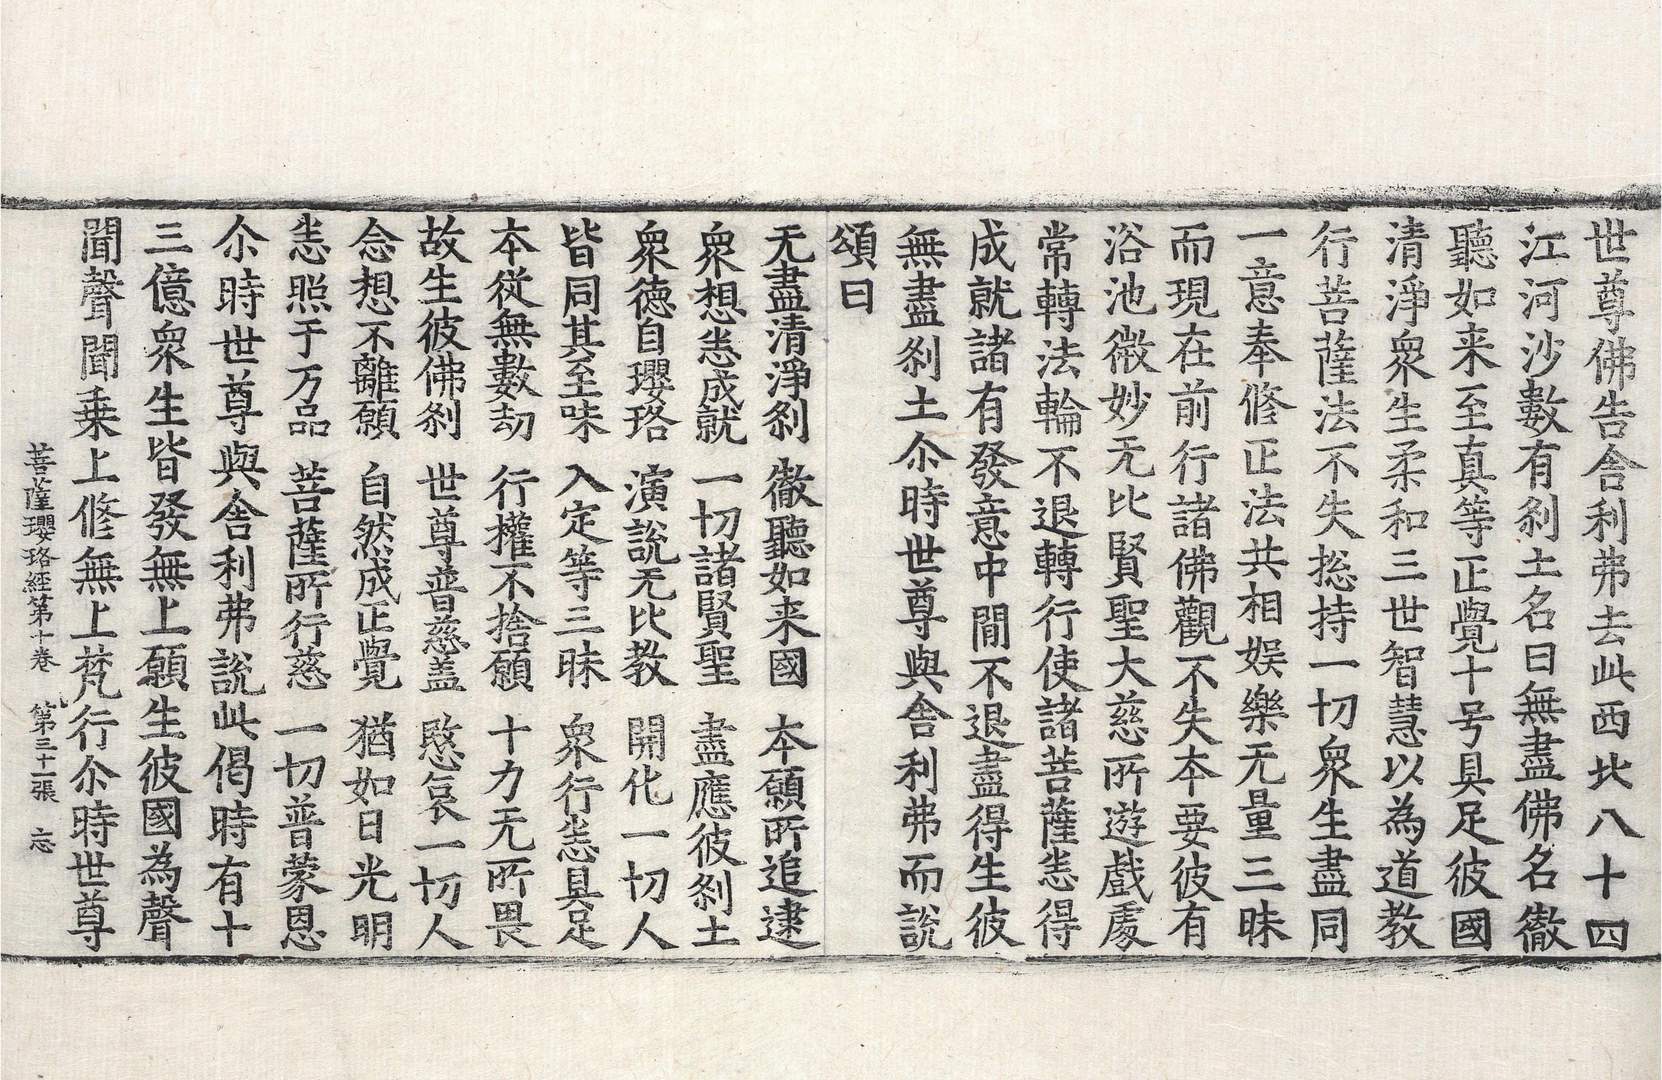 世尊佛告舍利弗去此西北八十四
江河沙數有刹土名曰無盡佛名徹
聽如来至真等正覺十号具足彼國
清淨衆生柔和三世智慧以為道教
行菩薩法不失揔持一切衆生盡同
一意奉修正法共相娛樂无量三昧
而現在前行諸佛觀不失本要彼有
浴池微妙无比賢聖大慈所遊戲處
常轉法輪不退轉行使諸菩薩悉得
成就諸有發意中間不退盡得生彼
無盡刹土尒時世尊與舍利弗而說
頌曰
无盡清淨刹　徹聽如来國　本願所追逮
衆想悉成就　一切諸賢聖　盡應彼刹土
衆德自瓔珞　演說无比教　開化一切人
皆同其至味　入定等三昧　衆行悉具足
本從無數劫　行權不捨願　十力无所畏
故生彼佛刹　世尊普慈盖　愍哀一切人
念想不離願　自然成正覺　猶如日光明
悉照于万品　菩薩所行慈　一切普蒙恩
尒時世尊與舍利弗說此偈時有十
三億衆生皆發無上願生彼國為聲
聞聲聞乗上修無上梵行尒時世尊
菩薩瓔珞經第十卷　第三十一張　忘